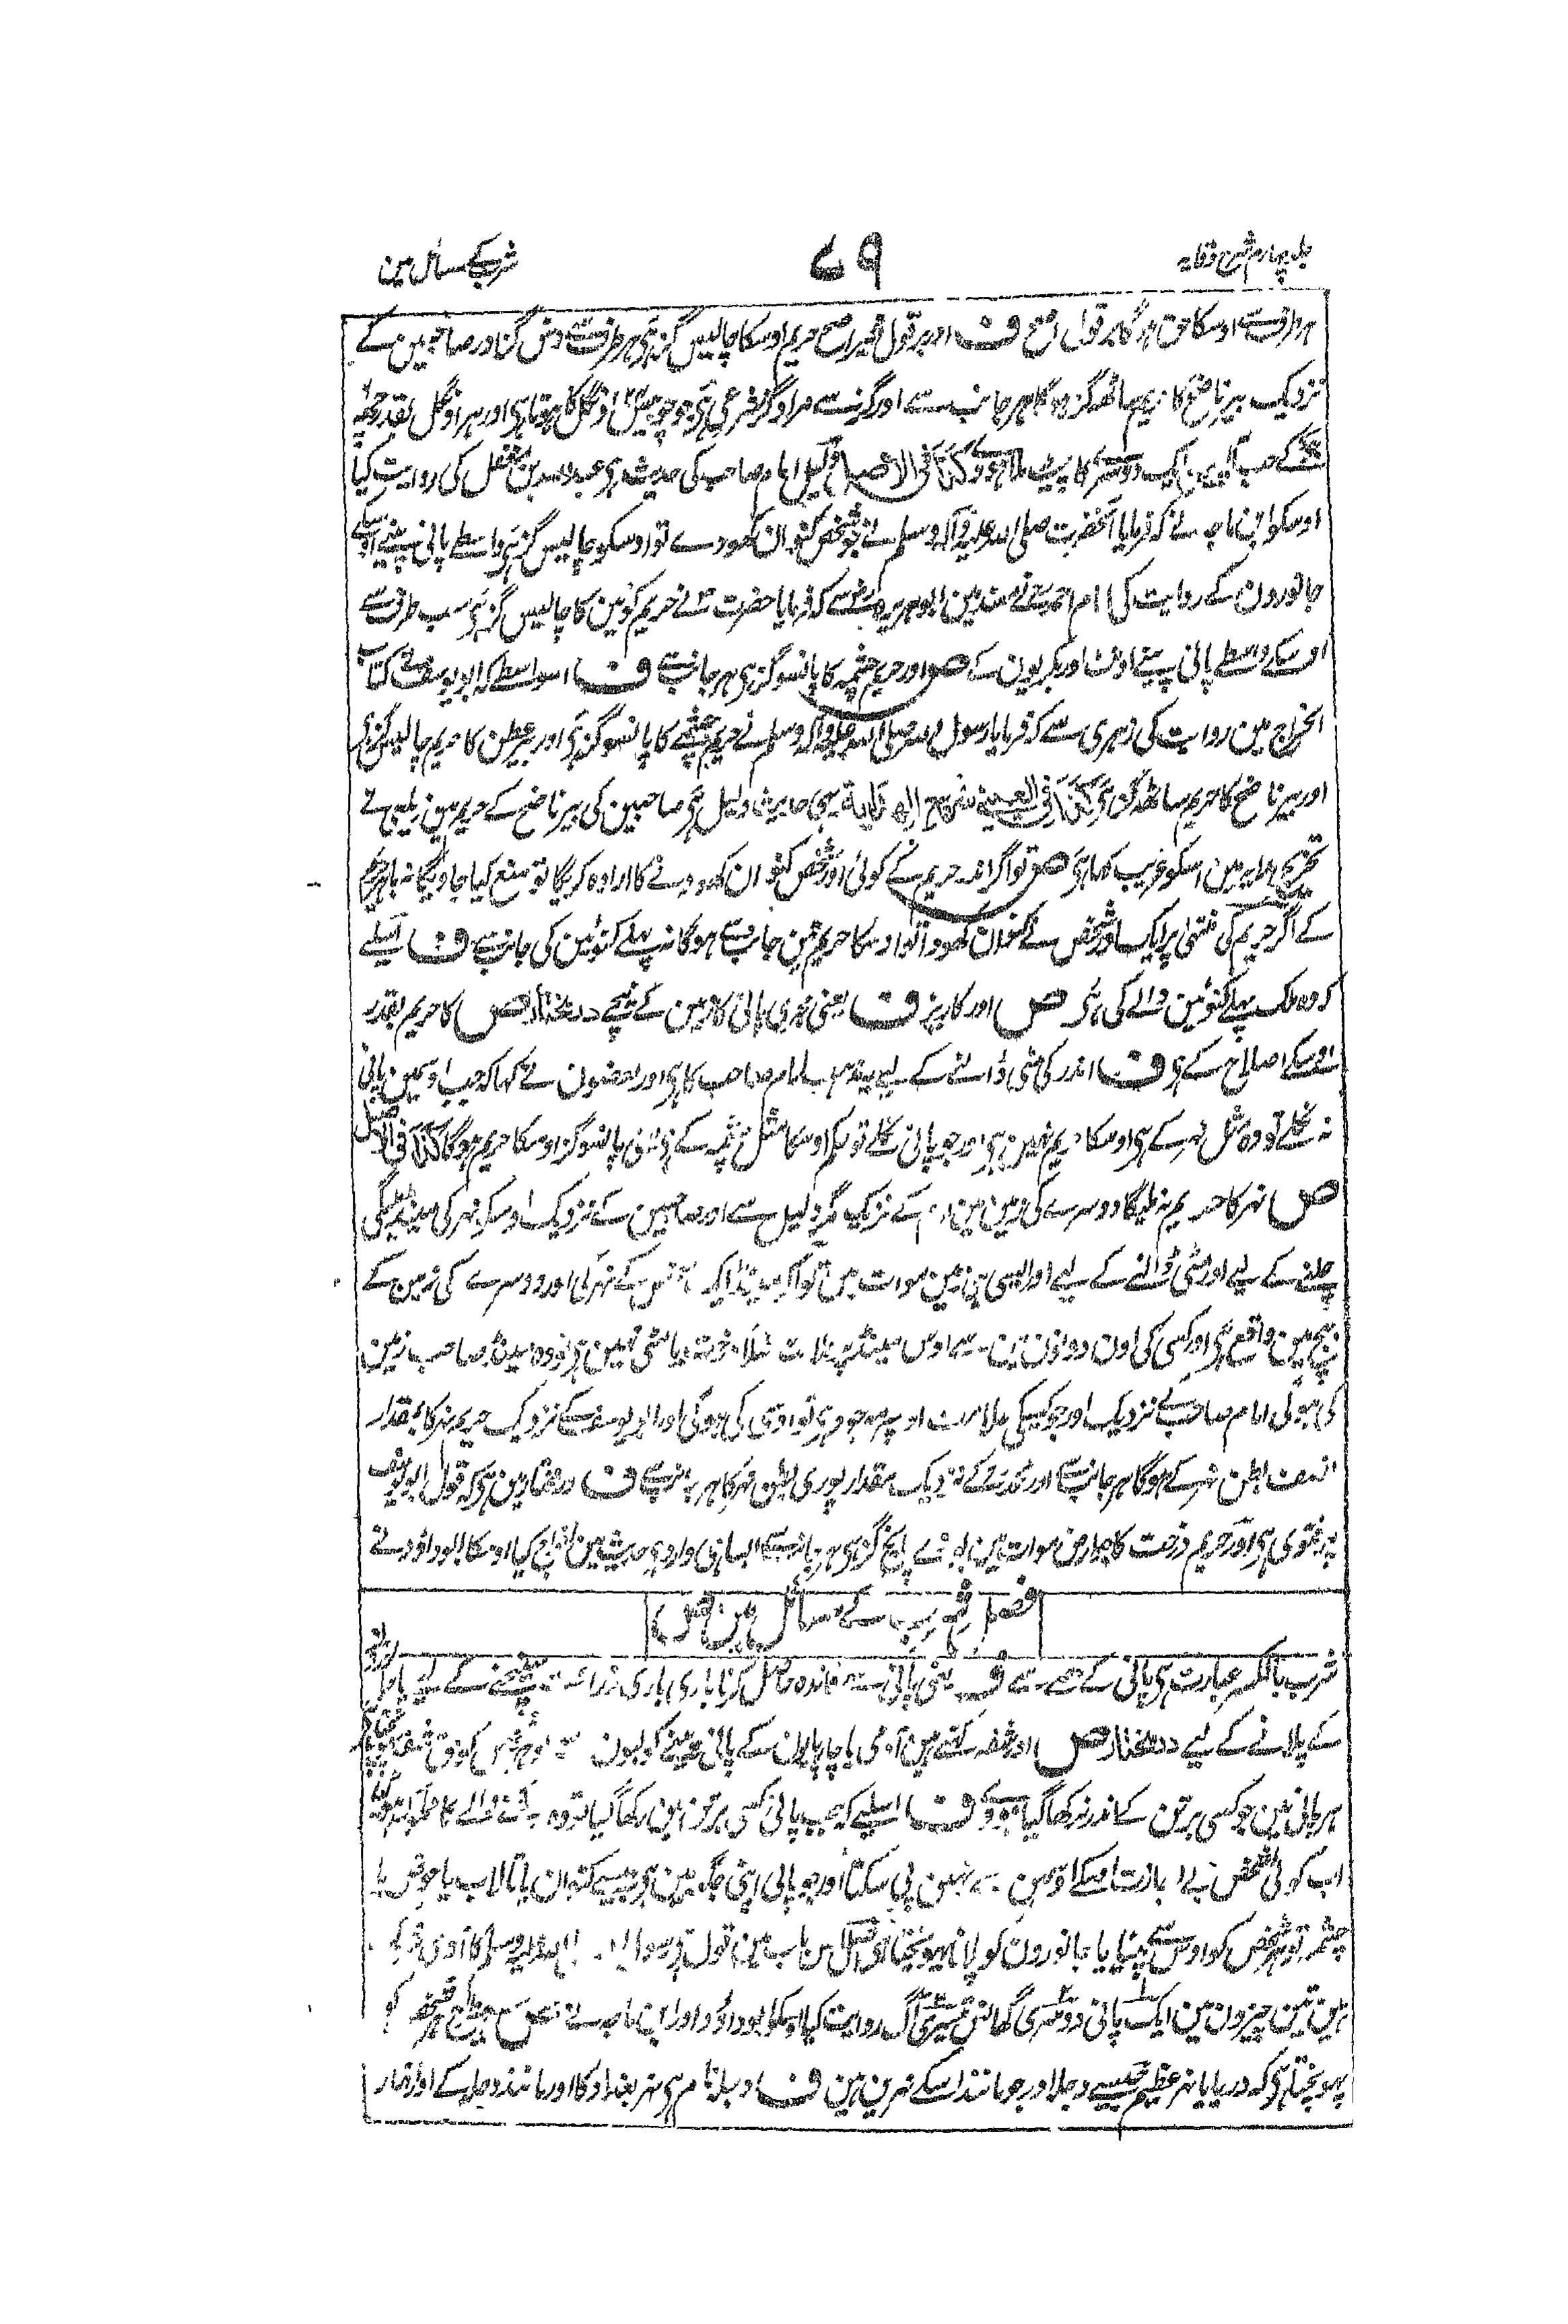 جلد چہارم شرح وقایہ
۷۹
شرب کے مسائل مین
ہر طرف سے اوسکا حق ہوگا بر قول اصح ف اور بر قول غیر اصح حریم اوسکا چالیس گز ہی ہر طرف سے دس گز اور صاحبین کے
نزدیک بیر ناضح کا حریم ساٹھ گز ہوگا ہر جانب سے اور گز سے مراد گز شرعی ہی جو چوبیس اونگل کا ہوتا ہی اور ہر اونگل بقدر چھ
کے جب ایک دوسرے کا پیٹ ملا ہو کذا فی الاصل دلیل امام صاحب کی حدیث ہی عبد اللہ بن مغفل کی روایت کیا
اوسکو ابن ماجہ نے کہ فرمایا آنحضرت صلی اللہ علیہ وآلہ وسلم نے جو شخص کنوان کھودے تو اوسکو چالیس گز ہی واسطے پانی پینے اوسکے
جانورون کے روایت کی امام احمد نے مسند مین ابوہریرہ سے کہ فرمایا حضرت نے حریم کنوین کا چالیس گز ہی سب طرف سے
اوسکے واسطے پانی پینے اونٹ اور بکریون کے ص اور حریم چشمہ کا پانسو گز ہی ہر جانب سے ف اسواسطے کہ ابو یوسف نے کتاب
الخراج مین روایت کی زہری سے کہ فرمایا رسول اللہ صلی اللہ علیہ وآلہ وسلم نے حریم چشمے کا پانسو گز ہی اور بیر عطن کا حریم چالیس گز ہی
اور بیر ناضح کا حریم ساٹھ گز ہی کذا فی العینی شرح الہدایة یہی حدیث دلیل ہی صاحبین کی بیر ناضح کے حریم مین زیلعی نے
تخریج ہدایہ مین اسکو غریب کہا ہی ص تو اگر اندر حریم کے کوئی اور شخص کنوان کھودنے کا ارادہ کریگا تو منع کیا جاویگا نہ باہر حریم
کے اگر حریم کی منتہی پر ایک اور شخص نے کنوان کھودا تو اوسکا حریم تین جانب سے ہوگا نہ پہلے کنوئین کی جانب سے ف اسلیے
کہ وہ ملک پہلے کنوئین والے کی ہی ص اور کاریز ف یعنی مجری پانی کا زمین کے نیچے درمختار ص کا حریم بقدر
اوسکے اصلاح کے ہی ف اندر کی مٹی ڈالنے کے لیے یہ مذہب امام صاحب کا ہی اور بعضون نے کہا کہ جب اوسمین پانی
نہ نکلے تو وہ مثل نہر کے ہی اوسکا حریم نہین ہی اور جو پانی نکلے تو حکم اوسکا مثل چشمہ کے ہی یعنی پانسو گز اوسکا حریم ہوگا کذا فی الاصل
ص نہر کا حریم نہ ملیگا دوسرے کی زمین مین امام کے نزدیک مگر دلیل سے اور صاحبین کے نزدیک اوسکو نہر کی مینڈ ملیگی
چلنے کے لیے اور مٹی ڈالنے کے لیے اور ایسی ہی زمین موات مین تو اگر مینڈ ایک شخص کے نہر کی اور دوسرے کی زمین کے
بیچ مین واقع ہی اور کسی کی اون دونون مین سے اوس مینڈ پر علامت مثلا درخت یا مٹی نہین ہی تو وہ مینڈ صاحب زمین
کی ہوگی امام صاحب کے نزدیک اور جو کسیکی علامت اوسپر موجود ہی تو اوسی کی ہوگی اور ابو یوسف کے نزدیک حریم نہر کا بمقدار
نصف بطن نہر کے ہوگا ہر جانب سے اور محمد کے نزدیک مقدار پوری بطن نہر کا ہر جانب سے ف درمختار مین ہی کہ قول ابو یوسف
پر فتوی ہی اور حریم درخت کا جو ارض موات مین بووے پانچ گز ہی ہر جانب سے ایسا ہی وارد ہی حدیث مین اخراج کیا اوسکا ابو داؤد نے
فصل شرب کے مسائل مین ص
شرب بالکسر عبارت ہی پانی کے حصے سے ف یعنی پانی سے فائدہ حاصل کرنا باری باری زراعت سینچنے کے لیے یا جانورون
کے پلانے کے لیے درمختار ص اور شفہ کہتے ہین آدمی یا چارپایون کے پانی پینے کو لبون سے
ہر پانی مین جو کسی برتن کے اندر نہ رکھا گیا ہووے ف اسلیے کہ جب پانی کسی برتن مین رکھا گیا تو وہ رکھنے والے کا مملوک ہوگیا
اب کوئی شخص بے اجازت اوسکے اوسمین سے نہین پی سکتا اور جو پانی اپنی جگہ مین ہی جیسے کنوان یا تالاب یا حوض یا
چشمہ تو ہر شخص کو اوس سے پینا یا جانورون کو پلانا پہونچتا ہی اصل اس باب مین قول رسول اللہ صلی اللہ علیہ وسلم کا آدمی شریک
ہین تین چیزون مین ایک پانی دوسری گھانس تیسری آگ روایت کیا اوسکو ابو داؤد اور ابن ماجہ نے ص ہر شخص کو
پہونچتا ہی کہ دریا یا نہر عظیم جیسے دجلا اور جو مانند اسکے نہرین ہین ف دجلا نام ہی نہر بغداد کا اور مانند دجلہ کے اور انہار